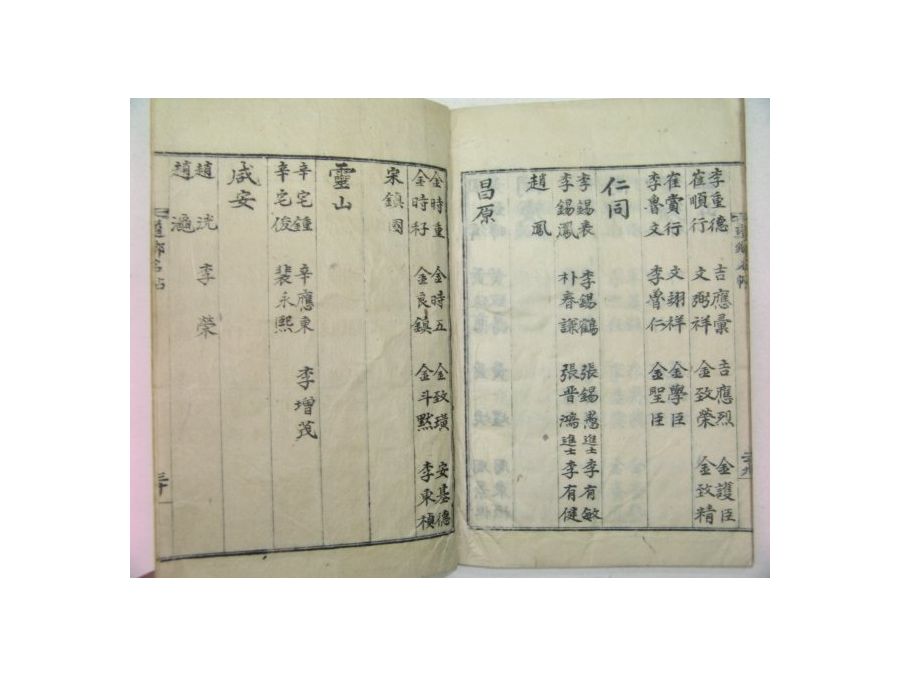 李重德 吉應彙 吉應烈 金護臣
崔順行 文弼祥 金致榮 金致精
崔賞行 文翊祥 金學臣
李魯文 李魯仁 金聖臣
仁同
李錫表 李錫鶴 張錫愚進士 李有敏
李錫鳳 朴春謙 張晋鴻進士 李有健
趙鳳
昌原
金時重 金時五 金致璜 安基德
金時 金良鎮 金斗黙 李東禎
宋鎮國
靈山
辛宅鍾 辛應東 李增茂
辛宅俊 裴永熙
咸安
趙洸 李榮
趙
三十